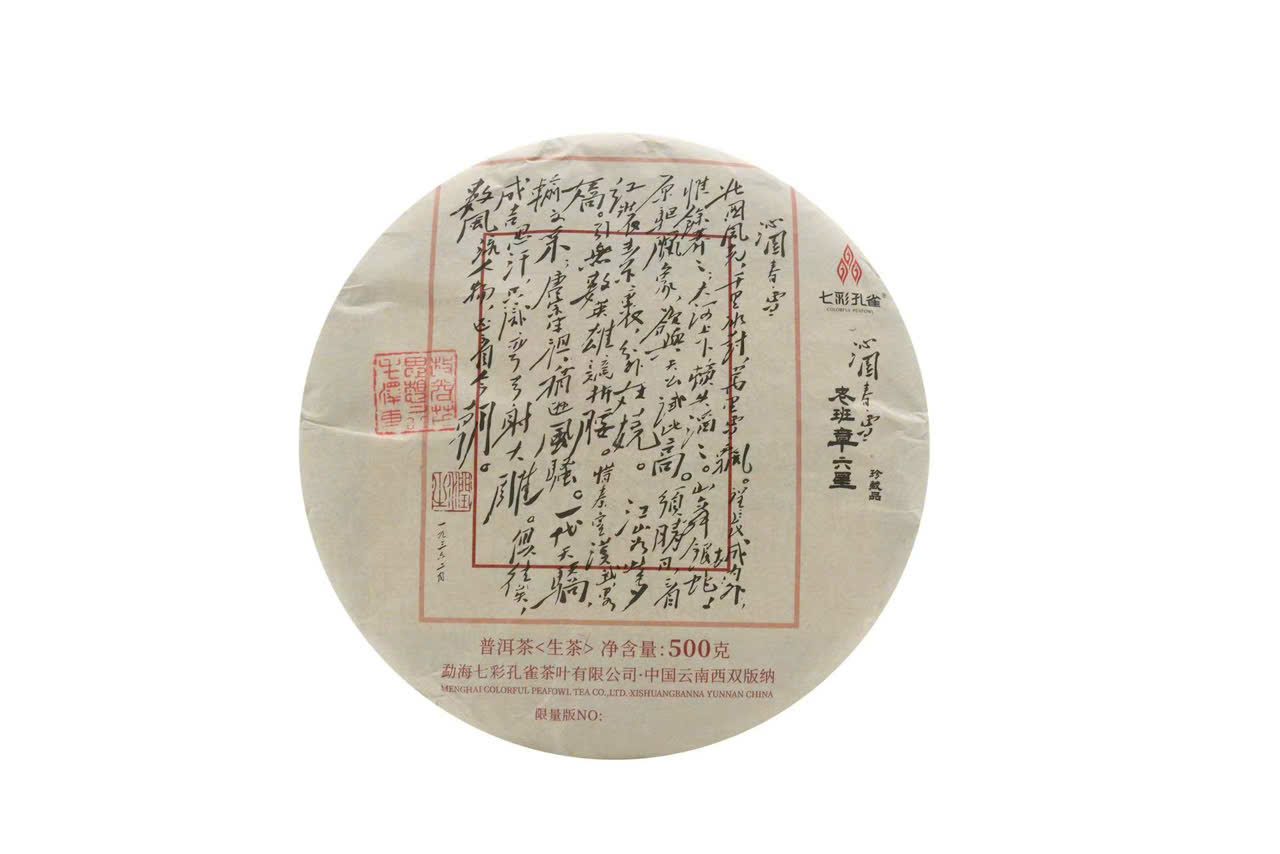 沁園春·雪
北國風光,千里冰封,萬里雪飘。望長城内外,
惟餘莽々;大河上下,頓失滔々。山舞銀蛇,
原驅臘象,欲與天公試比高。須晴日,看
红裝素裹,分外妖娆。江山如此多
嬌。引無數英雄競折腰。惜秦皇漢武,畧
輸文采;唐宗宋祖,稍逊風骚。一代天驕,
成吉思汗,只識弯弓射大雕。俱往矣,
数風流人物,还看今朝。
毛澤東
潤之
一九三六.二月
七彩孔雀®
COLORFUL PEAFOWL
沁園春·雪
老班章六星
珍藏品
普洱茶<生茶> 净含量:500克
勐海七彩孔雀茶叶有限公司·中国云南西双版纳
MENGHAI COLORFUL PEAFOWL TEA CO.,LTD. XISHUANGBANNA YUNNAN CHINA
限量版NO: